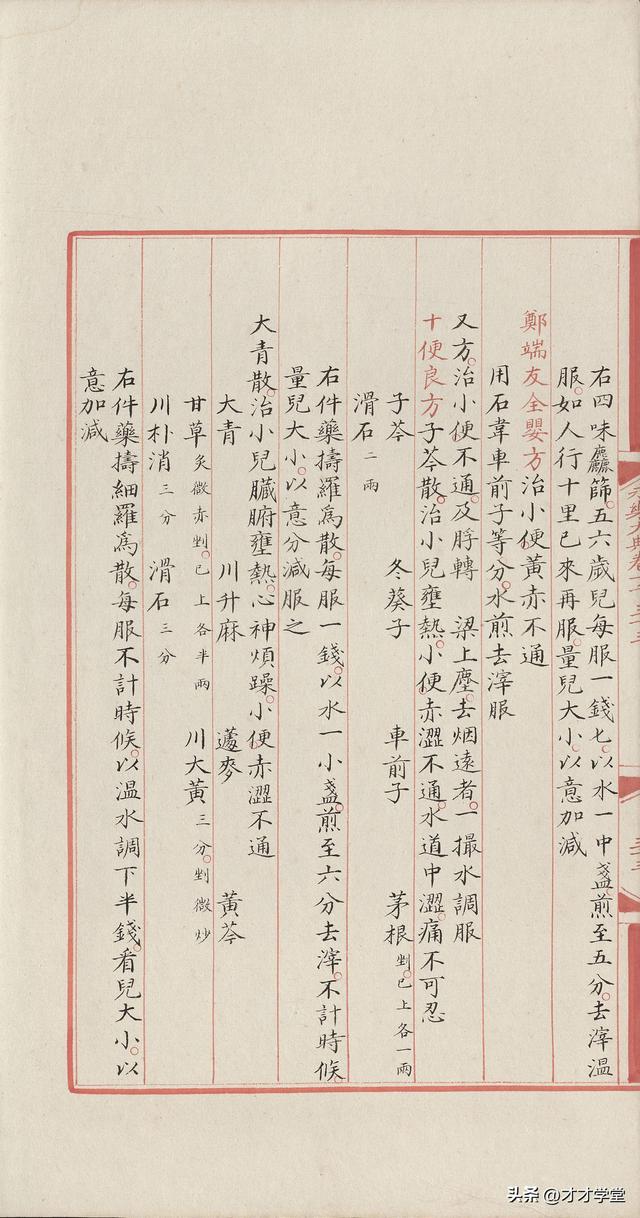 右四味麤篩。五六歲兒每服一錢七。以水一中盞。煎至五分。去滓溫
服。如人行十里已來再服。量兒大小。以意加減
鄭端友全嬰方治小便黃赤不通
用石韋車前子等分。水煎去滓服
又方。治小便不通。及脬轉 梁上塵。去烟遠者。一撮水調服
十便良方子芩散。治小兒壅熱。小便赤澀不通。水道中澀。痛不可忍
子芩 冬葵子 車前子 茅根剉。已上各一兩
滑石二兩
右件藥擣羅爲散。每服一錢。以水一小盞。煎至六分去滓。不計時候
量兒大小。以意分減服之
大青散。治小兒臟腑壅熱。心神煩躁。小便赤澀不通
大青 川升麻 蘧麥 黃芩
甘草炙微赤剉。已上各半兩 川大黃三分。剉微炒
川朴消三分 滑石三分
右件藥擣細羅爲散。每服不計時候。以溫水調下半錢。看兒大小。以
意加減
头条 @才才学堂